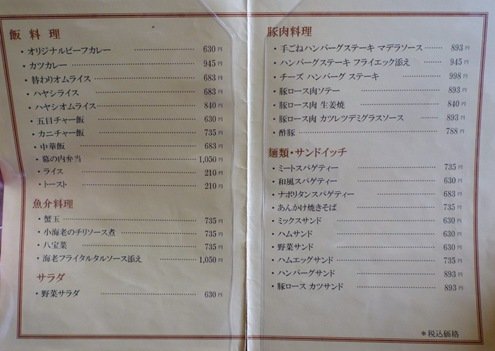 飯 料 理
・オリジナルビーフカレー 630円
・カツカレー 945円
・替わりオムライス 683円
・ハヤシライス 683円
・ハヤシオムライス 840円
・五目チャー飯 630円
・カニチャー飯 735円
・中華飯 683円
・幕の内弁当 1,050円
・ライス 210円
・トースト 210円
魚介料理
・蟹玉 735円
・小海老のチリソース煮 735円
・八宝菜 735円
・海老フライタルタルソース添え 1,050円
サラダ
・野菜サラダ 630円
豚肉料理
・手ごねハンバーグステーキ マデラソース 893円
・ハンバーグステーキ フライエック添え 945円
・チーズ ハンバーグ ステーキ 998円
・豚ロース肉ソテー 893円
・豚ロース肉 生姜焼 840円
・豚ロース肉 カツレツデミグラスソース 893円
・酢豚 788円
麺類・サンドイッチ
・ミートスパゲティー 735円
・和風スパゲティー 630円
・ナポリタンスパゲティー 683円
・あんかけ焼きそば 735円
・ミックスサンド 630円
・ハムサンド 630円
・野菜サンド 630円
・ハムエッグサンド 735円
・ハンバーグサンド 893円
・豚ロース カツサンド 893円
＊税込価格